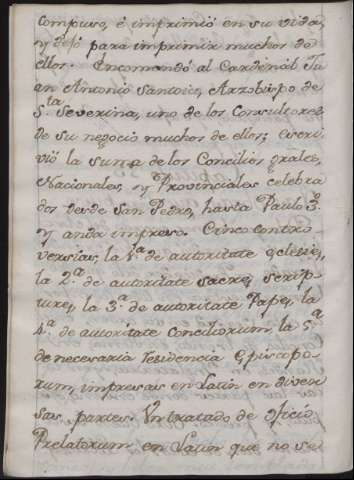 compuso, é imprimió en su vida,
y dejó para imprimir muchos de
ellos. Encomendó al Cardenal Ju
an Antonio Santoio, Arzobispo de
S.ta Severina, uno de los Consultores
de su negocio muchos de ellos; escri-
vió la suma de los Concilios grales,
Nacionales, y Provinciales celebra
dos desde San Pedro, hasta Paulo 3.º
y anda impreso. Cinco contro
versias, la 1.ª de autoritate eclesie,
la 2.ª de autoritate sacre scrip-
ture, la 3.ª de autoritate Pape, la
4.ª de autoritate conciliorum, la 5.ª
de necesaria residencia Episcopo-
rum, impresas en Latin en diver
sas partes. Un tratado de oficio
Prelatorum en Latin que no se